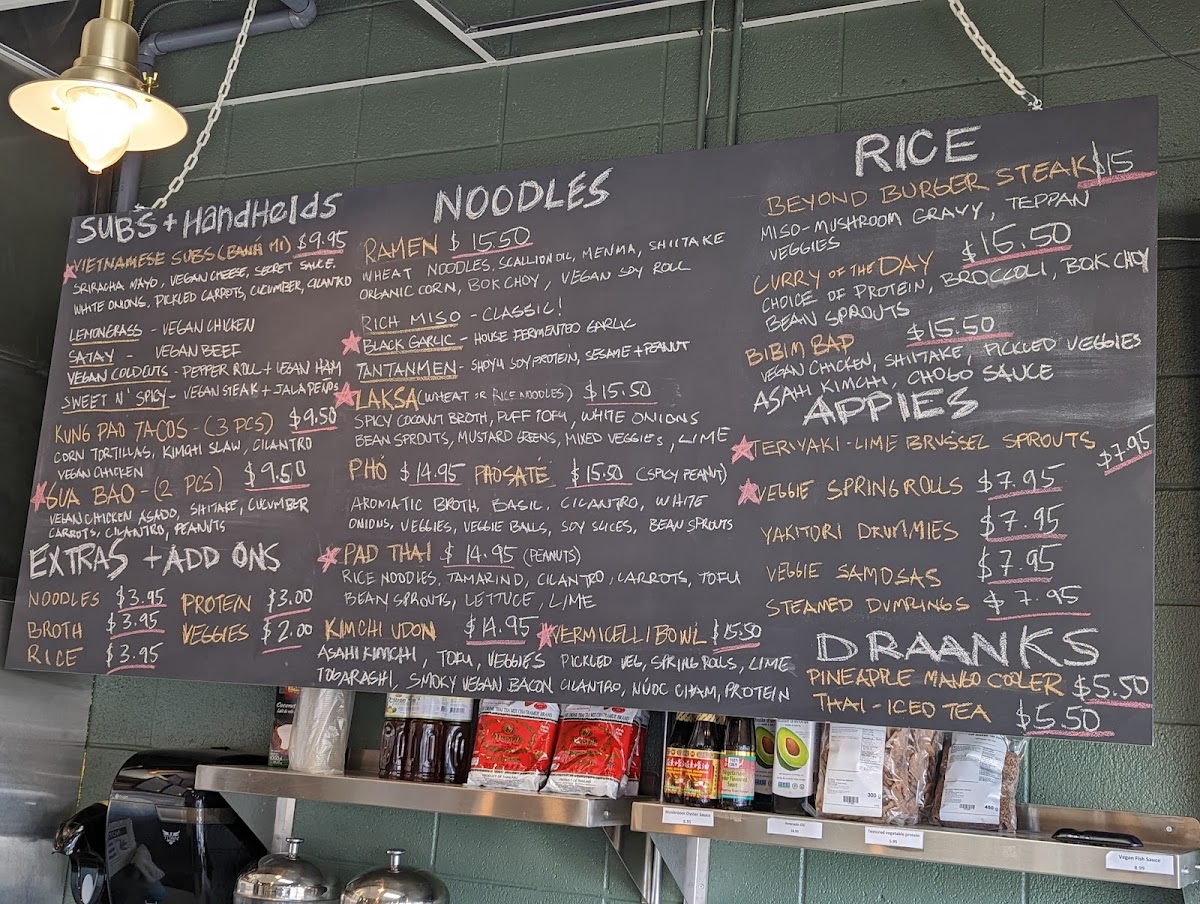 SUBS + HANDHELDS
VIETNAMESE SUBS (BANH MI) $9.95
SRIRACHA MAYO, VEGAN CHEESE, SECRET SAUCE,
WHITE ONIONS, PICKLED CARROTS, CUCUMBER, CILANTRO
LEMONGRASS - VEGAN CHICKEN
SATAY - VEGAN BEEF
VEGAN COLDCUTS - PEPPER ROLL + VEGAN HAM
SWEET N' SPICY - VEGAN STEAK + JALAPEÑOS
KUNG PAO TACOS - (3 PCS) $9.50
CORN TORTILLAS, KIMCHI SLAW, CILANTRO
VEGAN CHICKEN
GUA BAO - (2 PCS) $9.50
VEGAN CHICKEN ASADO, SHIITAKE, CUCUMBER
CARROTS, CILANTRO, PEANUTS
EXTRAS + ADD ONS
NOODLES $3.95 PROTEIN $3.00
BROTH $3.95 VEGGIES $2.00
RICE $3.95
NOODLES
RAMEN $15.50
WHEAT NOODLES, SCALLION OIL, MENMA, SHIITAKE
ORGANIC CORN, BOK CHOY, VEGAN SOY ROLL
RICH MISO - CLASSIC!
BLACK GARLIC - HOUSE FERMENTED GARLIC
TANTANMEN - SHOYU SOY PROTEIN, SESAME + PEANUT
LAKSA (WHEAT OR RICE NOODLES) $15.50
SPICY COCONUT BROTH, PUFF TOFU, WHITE ONIONS
BEAN SPROUTS, MUSTARD GREENS, MIXED VEGGIES, LIME
PHO $14.95 PHO SATE $15.50 (SPICY PEANUT)
AROMATIC BROTH, BASIL, CILANTRO, WHITE
ONIONS, VEGGIES, VEGGIE BALLS, SOY SLICES, BEAN SPROUTS
PAD THAI $14.95 (PEANUTS)
RICE NOODLES, TAMARIND, CILANTRO, CARROTS, TOFU
BEAN SPROUTS, LETTUCE, LIME
KIMCHI UDON $14.95
ASAHI KIMCHI, TOFU, VEGGIES
TOGARASHI, SMOKY VEGAN BACON
VERMICELLI BOWL $15.50
PICKLED VEG, SPRING ROLLS, LIME
CILANTRO, NUOC CHAM, PROTEIN
RICE
BEYOND BURGER STEAK $15
MISO-MUSHROOM GRAVY, TEPPAN
VEGGIES
CURRY OF THE DAY $15.50
CHOICE OF PROTEIN, BROCCOLI, BOK CHOY
BEAN SPROUTS
BIBIM BAP $15.50
VEGAN CHICKEN, SHIITAKE, PICKLED VEGGIES
ASAHI KIMCHI, CHOGO SAUCE
APPIES
TERIYAKI-LIME BRUSSEL SPROUTS $7.95
VEGGIE SPRING ROLLS $7.95
YAKITORI DRUMMIES $7.95
VEGGIE SAMOSAS $7.95
STEAMED DUMPLINGS $7.95
DRAANKS
PINEAPPLE MANGO COOLER $5.50
THAI-ICED TEA $5.50
Mushroom Oyster Sauce
Avocado Oil
Textured vegetable protein
5.95
Vegan Fish Sauce
8.99